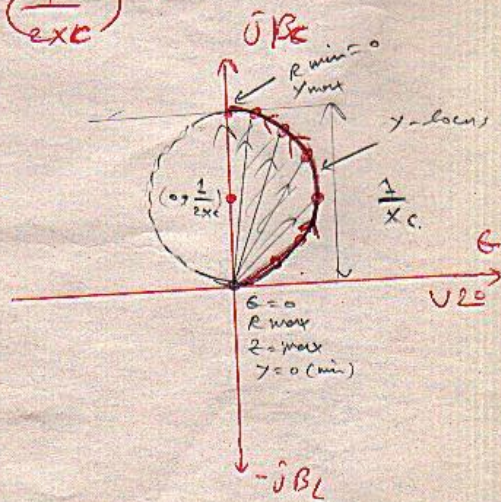 1
2XC
jBC
R min = 0
Ymax
Y-locus
(0, 1/2XC)
1
XC
G
V20
G = 0
R max
Z = max
Y = 0 (min)
-jBL